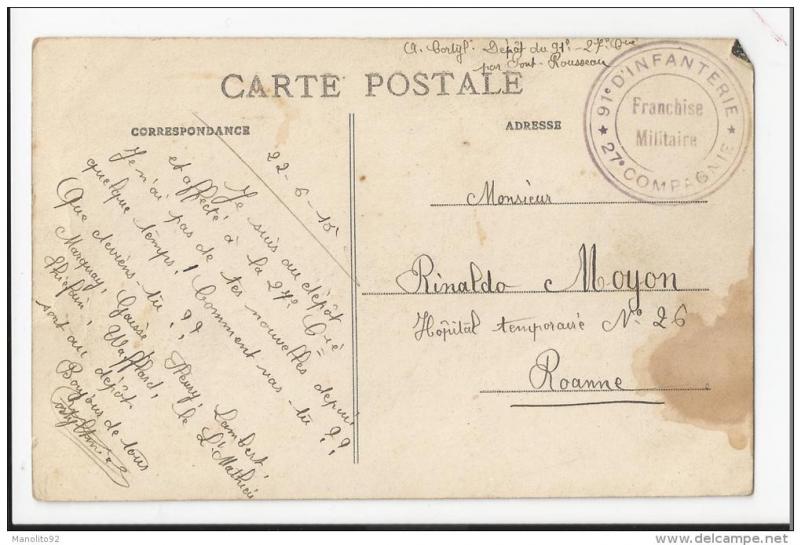 A. Cortyl. Dépôt du 91e - 27e Cie
par Pont-Rousseau
CARTE POSTALE
CORRESPONDANCE
ADRESSE
91e D'INFANTERIE
Franchise
Militaire
27e COMPAGNIE
22-6-15
Je suis au dépôt
et affecté à la 27e Cie
Je n'ai pas de tes nouvelles depuis
quelque temps! Comment vas-tu??
Que deviens-tu??
Marquay, Fleury, Lambert,
le Lt Mathieu
sont au dépôt
Bonjour de tous
Monsieur
Rinaldo Moyon
Hôpital temporaire No 26
Roanne
Manolito92
delcampe.net